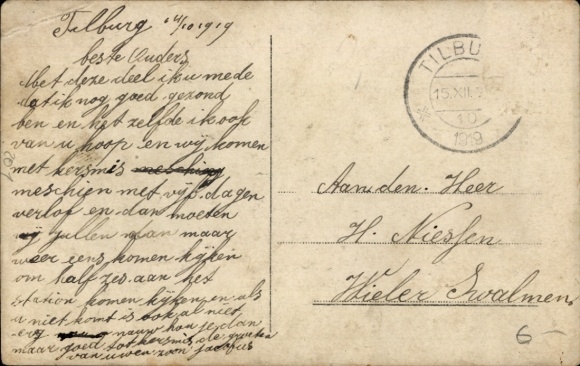 Tilburg 14/10 1919
beste Ouders
Met deze deel ik u mede
dat ik nog goed gezond
ben en het zelfde ik ook
van u hoop en wij komen
met kersmis
meschien met vijf dagen
verlof en dan moeten
jullen dan maar
weer eens komen kijken
om half zes aan het
station komen kijken en als
u niet komt is ook al niet
erg nauw hou je dan
maar goed tot kersmis de groeten
van uwen zoon Jacobus
TILBU
15.XII
10
1919
Aan den Heer
H. Niessen
Wieler Swalmen
6-